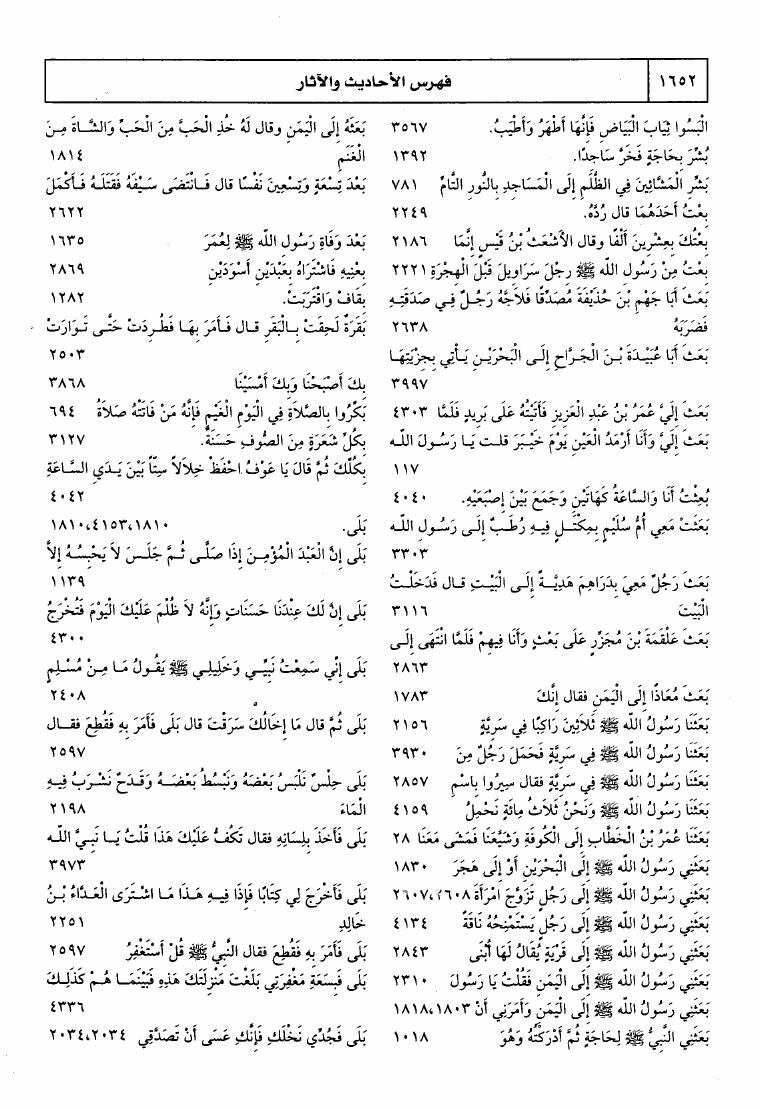 ١٦٥٢
فهرس الأحاديث والآثار
الْبَسُوا ثِيَابَ الْبَيَاضِ فَإِنَّهَا أَطْهَرُ وَأَطْيَبُ. ٣٥٦٧
بُشِّرَ بِحَاجَةٍ فَخَرَّ سَاجِدًا. ١٣٩٢
بَشِّرِ الْمَشَّائِينَ فِي الظُّلَمِ إِلَى الْمَسَاجِدِ بِالنُّورِ التَّامِّ ٧٨١
بِعْتُ أَحَدَهُمَا قال رُدَّهُ. ٢٢٤٩
بِعْتُكَ بِعِشْرِينَ أَلْفًا وقال الأَشْعَثُ بْنُ قَيْسٍ إِنَّمَا ٢١٨٦
بِعْتُ مِنْ رَسُولِ اللّه ﷺ رِجْلَ سَرَاوِيلَ قَبْلَ الْهِجْرَةِ ٢٢٢١
بَعَثَ أَبَا جَهْمِ بْنَ حُذَيْفَةَ مُصَدِّقًا فَلاَجَّهُ رَجُلٌ فِي صَدَقَتِهِ
فَضَرَبَهُ ٢٦٣٨
بَعَثَ أَبَا عُبَيْدَةَ بْنَ الْجَرَّاحِ إِلَى الْبَحْرَيْنِ يَأْتِي بِجِزْيَتِهَا
٣٩٩٧
بَعَثَ إِلَيَّ عُمَرُ بْنُ عَبْدِ الْعَزِيزِ فَأَتَيْتُهُ عَلَى بَرِيدٍ فَلَمَّا ٤٣٠٣
بَعَثَ إِلَيَّ وَأَنَا أَرْمَدُ الْعَيْنِ يَوْمَ خَيْبَرَ قلت يَا رَسُولَ اللّه
١١٧
بُعِثْتُ أَنَا وَالسَّاعَةُ كَهَاتَيْنِ وَجَمَعَ بَيْنَ إِصْبَعَيْهِ. ٤٠٤٠
بَعَثَتْ مَعِي أُمُّ سُلَيْمٍ بِمِكْتَلٍ فِيهِ رُطَبٌ إِلَى رَسُولِ اللّه
٣٣٠٣
بَعَثَ رَجُلٌ مَعِيَ بِدَرَاهِمَ هَدِيَّةً إِلَى الْبَيْتِ قال فَدَخَلْتُ
الْبَيْتَ ٣١١٦
بَعَثَ عَلْقَمَةَ بْنَ مُجَزِّرٍ عَلَى بَعْثٍ وَأَنَا فِيهِمْ فَلَمَّا انْتَهَى إِلَى
٢٨٦٣
بَعَثَ مُعَاذًا إِلَى الْيَمَنِ فقال إِنَّكَ ١٧٨٣
بَعَثَنَا رَسُولُ اللّه ﷺ ثَلاَثِينَ رَاكِبًا فِي سَرِيَّةٍ ٢١٥٦
بَعَثَنَا رَسُولُ اللّه ﷺ فِي سَرِيَّةٍ فَحَمَلَ رَجُلٌ مِنَ ٣٩٣٠
بَعَثَنَا رَسُولُ اللّه ﷺ فِي سَرِيَّةٍ فقال سِيرُوا بِاسْمِ ٢٨٥٧
بَعَثَنَا رَسُولُ اللّه ﷺ وَنَحْنُ ثَلاَثُ مِائَةٍ نَحْمِلُ ٤١٥٩
بَعَثَنَا عُمَرُ بْنُ الْخَطَّابِ إِلَى الْكُوفَةِ وَشَيَّعَنَا فَمَشَى مَعَنَا ٢٨
بَعَثَنِي رَسُولُ اللّه ﷺ إِلَى الْبَحْرَيْنِ أَوْ إِلَى هَجَرَ ١٨٣٠
بَعَثَنِي رَسُولُ اللّه ﷺ إِلَى رَجُلٍ تَزَوَّجَ امْرَأَةَ ٢٦٠٧،٢٦٠٨
بَعَثَنِي رَسُولُ اللّه ﷺ إِلَى رَجُلٍ يَسْتَمْنِحُهُ نَاقَةً ٤١٣٤
بَعَثَنِي رَسُولُ اللّه ﷺ إِلَى قَرْيَةٍ يُقَالُ لَهَا أُبْنَى ٢٨٤٣
بَعَثَنِي رَسُولُ اللّه ﷺ إِلَى الْيَمَنِ فَقُلْتُ يَا رَسُولَ ٢٣١٠
بَعَثَنِي رَسُولُ اللّه ﷺ إِلَى الْيَمَنِ وَأَمَرَنِي أَنْ ١٨١٨،١٨٠٣
بَعَثَنِي النَّبِيُّ ﷺ لِحَاجَةٍ ثُمَّ أَدْرَكْتُهُ وَهُوَ ١٠١٨
بَعَثَهُ إِلَى الْيَمَنِ وقال لَهُ خُذِ الْحَبَّ مِنَ الْحَبِّ وَالشَّاةَ مِنَ
الْغَنَمِ ١٨١٤
بَعْدَ تِسْعَةٍ وَتِسْعِينَ نَفْسًا قال فَانْتَضَى سَيْفَهُ فَقَتَلَهُ فَأَكْمَلَ
٢٦٢٢
بَعْدَ وَفَاةِ رَسُولِ اللّه ﷺ لِعُمَرَ ١٦٣٥
بِعْنِيهِ فَاشْتَرَاهُ بِعَبْدَيْنِ أَسْوَدَيْنِ ٢٨٦٩
بِقَافْ وَاقْتَرَبَتْ. ١٢٨٢
بَقَرَةٌ لَحِقَتْ بِالْبَقَرِ قال فَأَمَرَ بِهَا فَطُرِدَتْ حَتَّى تَوَارَتْ
٢٥٠٣
بِكَ أَصْبَحْنَا وَبِكَ أَمْسَيْنَا ٣٨٦٨
بَكِّرُوا بِالصَّلاَةِ فِي الْيَوْمِ الْغَيْمِ فَإِنَّهُ مَنْ فَاتَتْهُ صَلاَةُ ٦٩٤
بِكُلِّ شَعَرَةٍ مِنَ الصُّوفِ حَسَنَةٌ. ٣١٢٧
بِكُلِّكَ ثُمَّ قَالَ يَا عَوْفُ احْفَظْ خِلاَلاً سِتًّا بَيْنَ يَدَيِ السَّاعَةِ
٤٠٤٢
بَلَى. ١٨١٠،٤١٥٣،١٨١٠
بَلَى إِنَّ الْعَبْدَ الْمُؤْمِنَ إِذَا صَلَّى ثُمَّ جَلَسَ لاَ يَحْبِسُهُ إِلاَّ
١١٣٩
بَلَى إِنَّ لَكَ عِنْدَنَا حَسَنَاتٍ وَإِنَّهُ لاَ ظُلْمَ عَلَيْكَ الْيَوْمَ فَتُخْرَجُ
٤٣٠٠
بَلَى إِنِّي سَمِعْتُ نَبِيِّي وَخَلِيلِي ﷺ يَقُولُ مَا مِنْ مُسْلِمٍ
٢٤٠٨
بَلَى ثُمَّ قال مَا إِخَالُكَ سَرَقْتَ قال بَلَى فَأَمَرَ بِهِ فَقُطِعَ فقال
٢٥٩٧
بَلَى حِلْسٌ نَلْبَسُ بَعْضَهُ وَنَبْسُطُ بَعْضَهُ وَقَدَحٌ نَشْرَبُ فِيهِ
الْمَاءَ ٢١٩٨
بَلَى فَأَخَذَ بِلِسَانِهِ فقال تَكُفُّ عَلَيْكَ هَذَا قُلْتُ يَا نَبِيَّ اللّه
٣٩٧٣
بَلَى فَأَخْرَجَ لِي كِتَابًا فَإِذَا فِيهِ هَذَا مَا اشْتَرَى الْعَدَّاءُ بْنُ
خَالِدِ ٢٢٥١
بَلَى فَأَمَرَ بِهِ فَقُطِعَ فقال النَّبِيُّ ﷺ قُلْ أَسْتَغْفِرُ ٢٥٩٧
بَلَى فَبِسَعَةِ مَغْفِرَتِي بَلَغْتَ مَنْزِلَتَكَ هَذِهِ فَبَيْنَمَا هُمْ كَذَلِكَ
٤٣٣٦
بَلَى فَجُدِّي نَخْلَكِ فَإِنَّكِ عَسَى أَنْ تَصَدَّقِي ٢٠٣٤،٢٠٣٤